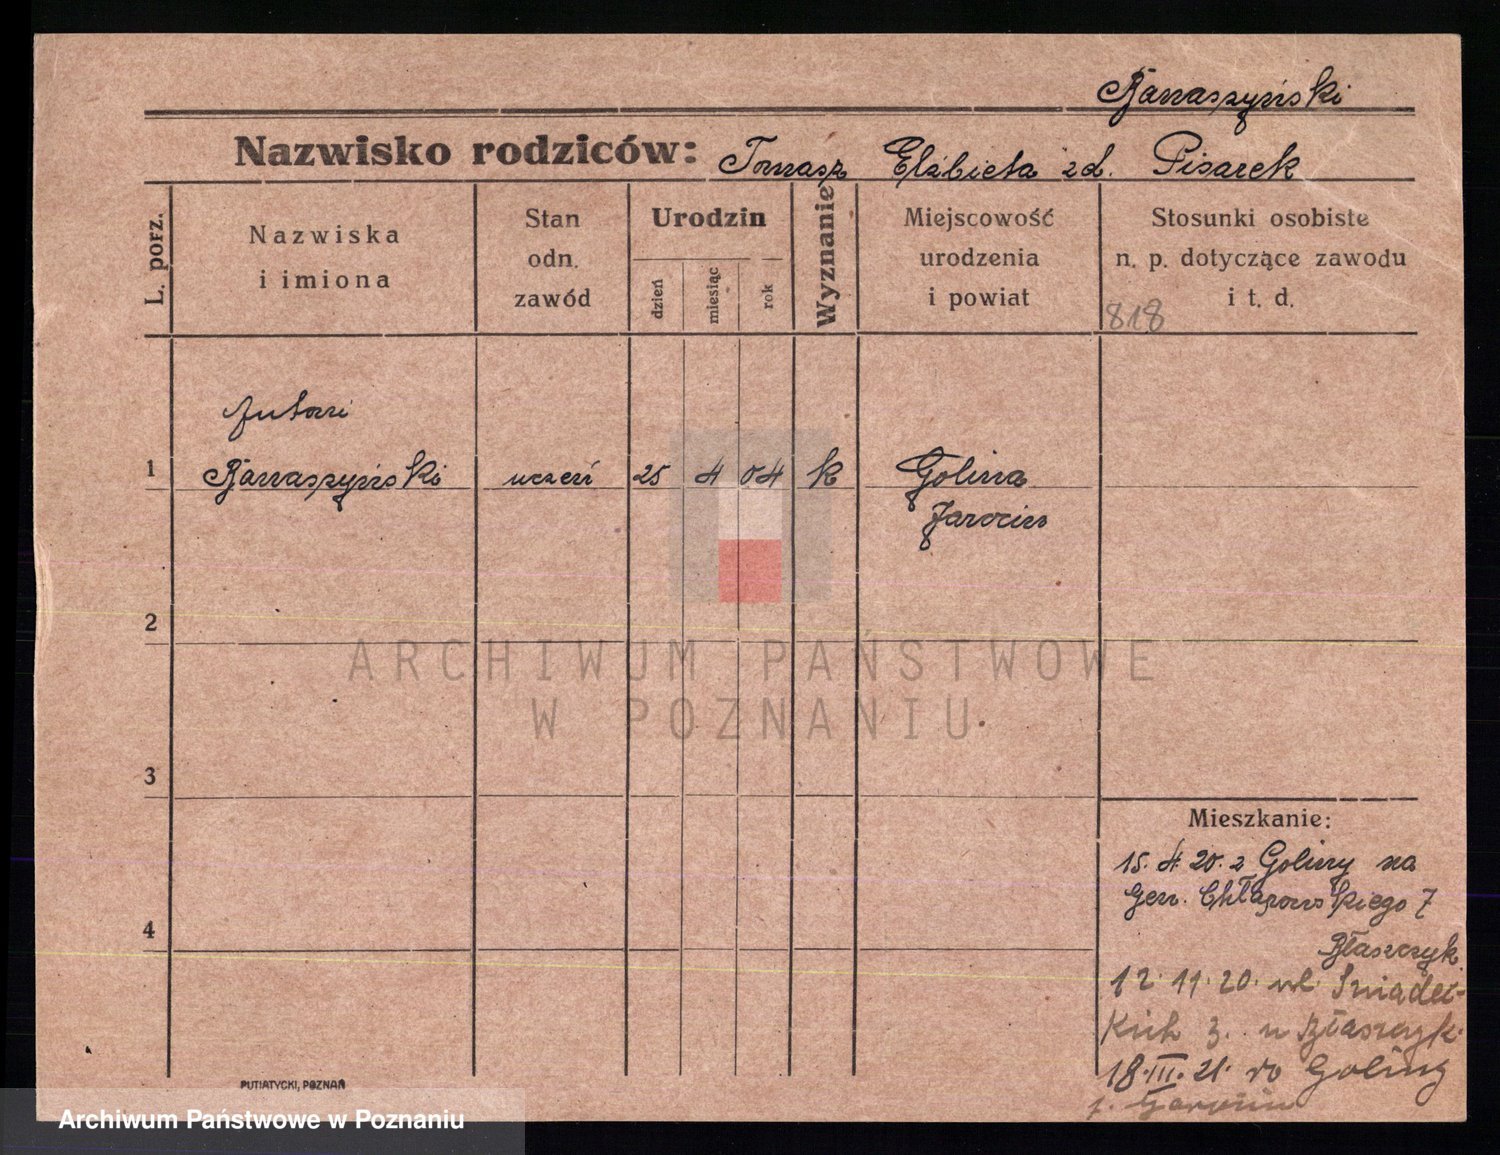 Banaszyński
Nazwisko rodziców: Tomasz Elżbieta zd. Pisarek
L. porz.
Nazwiska
i imiona
Stan
odn.
zawód
Urodzin
dzień
miesiąc
rok
Wyznanie
Miejscowość
urodzenia
i powiat
Stosunki osobiste
n. p. dotyczące zawodu
i t. d.
818
Antoni
1 Banaszyński uczeń 25 4 04 k Golina
Jarocin
2
3
4
Mieszkanie:
15. 4. 20. z Goliny na
Gen. Chłapowskiego 7
Błaszczyk
12. 11. 20. ul. Śniadec-
kich 3. u Błaszczyk.
18. III. 21. do Goliny
p. Jarocin
PUTIATYCKI, POZNAŃ
ARCHIWUM PAŃSTWOWE
W POZNANIU
Archiwum Państwowe w Poznaniu